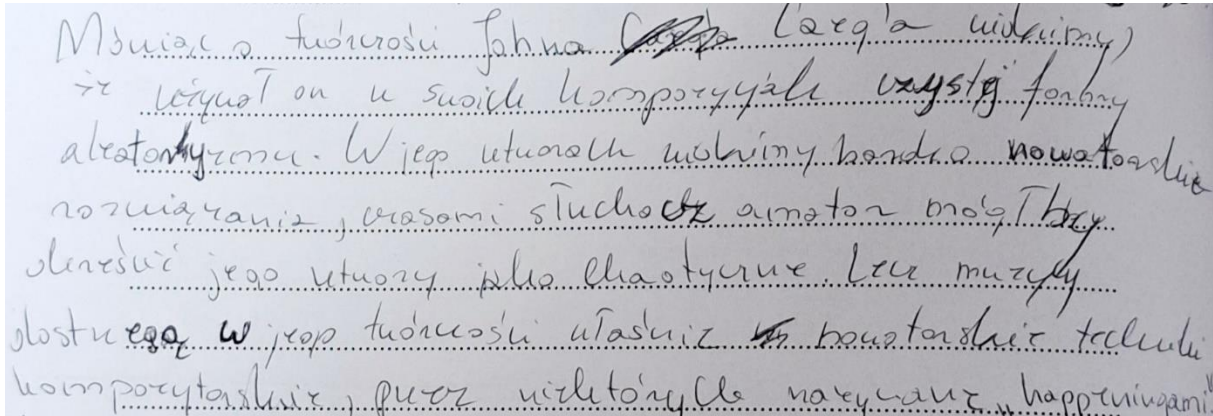 Mówiąc o twórczości Johna Cage'a widzimy,
że używał on w swoich kompozycjach czystej formy
aleatoryzmu. W jego utworach widzimy bardzo nowatorskie
rozwiązania, czasami słuchacz amator mógłby
określić jego utwory jako chaotyczne. Lecz muzycy
dostrzegą w jego twórczości właśnie nowatorskie techniki
kompozytorskie, przez niektórych nazywane „happeningami"